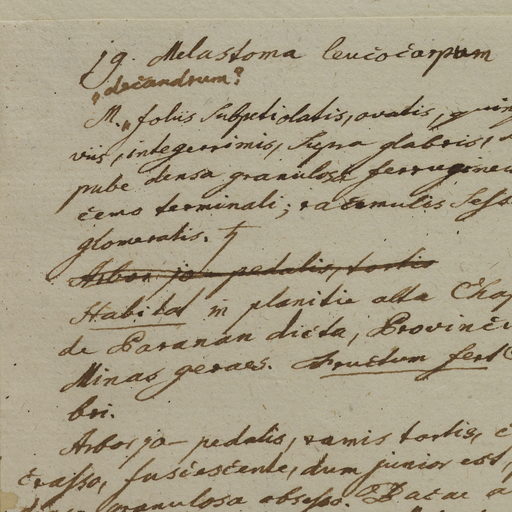 jg. Melastoma leucocarpum
„decandrum?
M.„ foliis Subpetiolatis, ovatis, quin
viis, integerrimis, Supra glabris, s
pube densa granulosa ferruginea
cemo terminali; racemulis Sess
glomeratis.
Arbor jo pedalis, tortis
Habitat in planitie alta Chap
de Paranan dicta, Provinciæ
Minas geraes. Fructum fert
bri.
Arbor jo- pedalis, ramis tortis, c
crasso, fuscescente, dum junior est,
granulosa obsesso. Bacae a